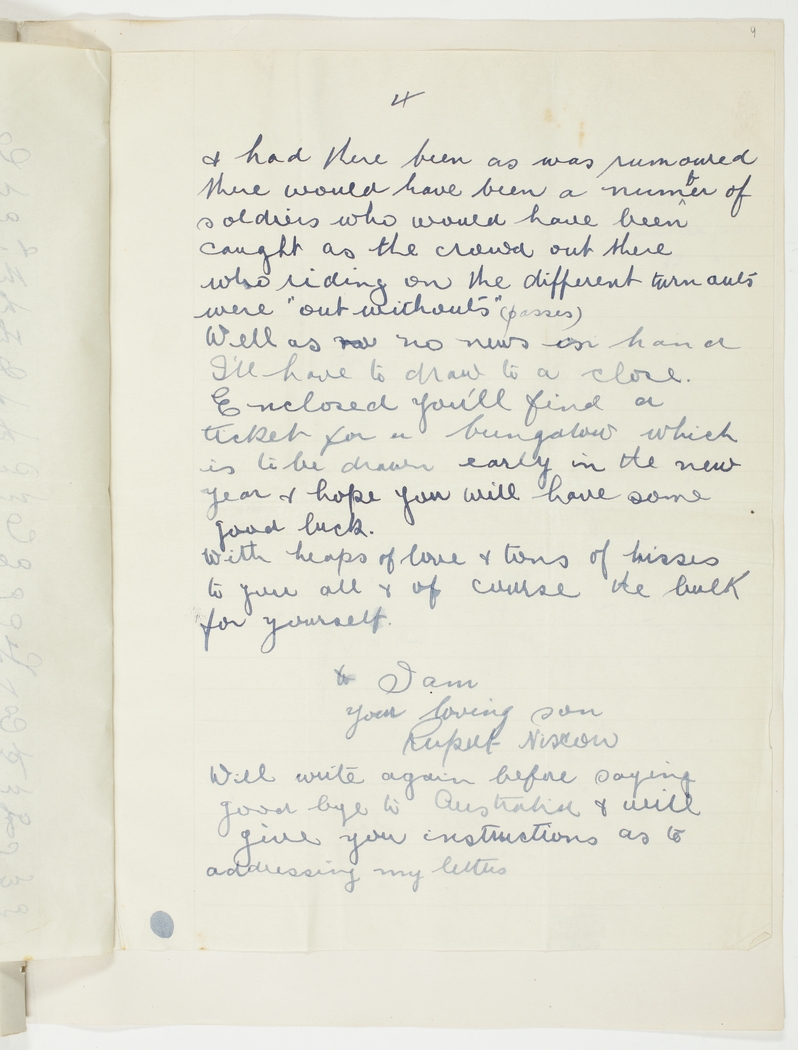 9
4
& had there been as was rumoured
there would have been a number of
soldiers who would have been
caught as the crowd out there
who riding on the different turnouts
were "out withouts" (passes)
Well as no news on hand
I'll have to draw to a close.
Enclosed you'll find a
ticket for a bungalow which
is to be drawn early in the new
year & hope you will have some
good luck.
With heaps of love & tons of kisses
to you all & of course the bulk
for yourself.
I am
your loving son
Rupert
Will write again before saying
good bye to Australia & will
give you instructions as to
addressing my letters